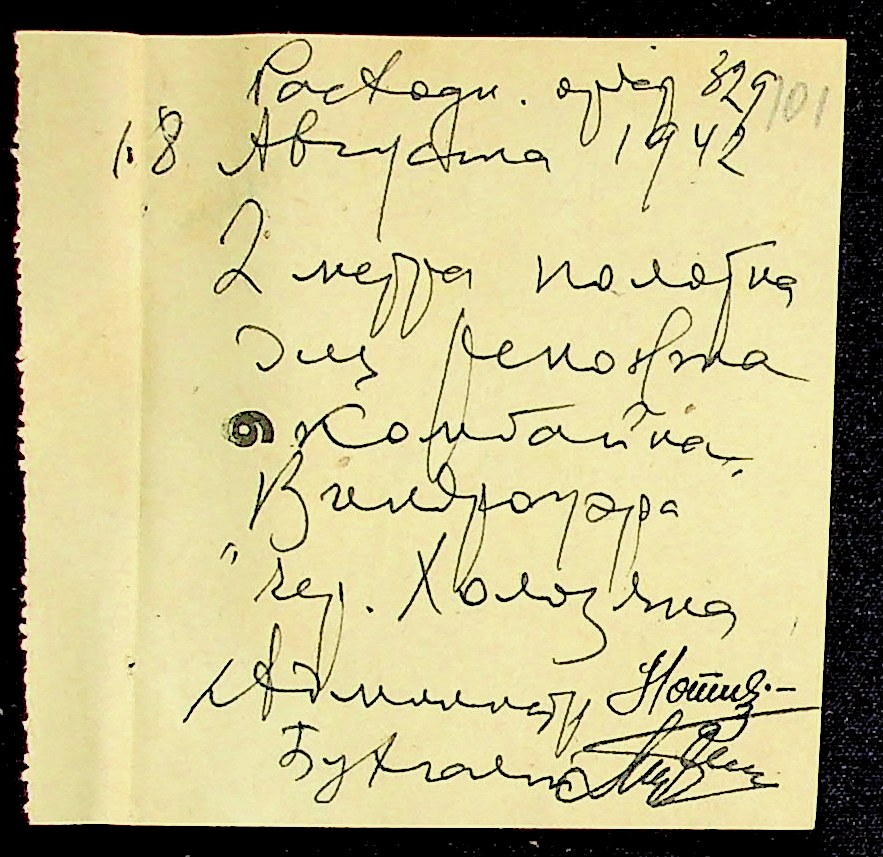 Расходн. ордер 329 101
18 Августа 1942
2 метра полотна
для ремонта
комбайна
Виндроуэра
чер. Холозяна
Администр
Бухгалт